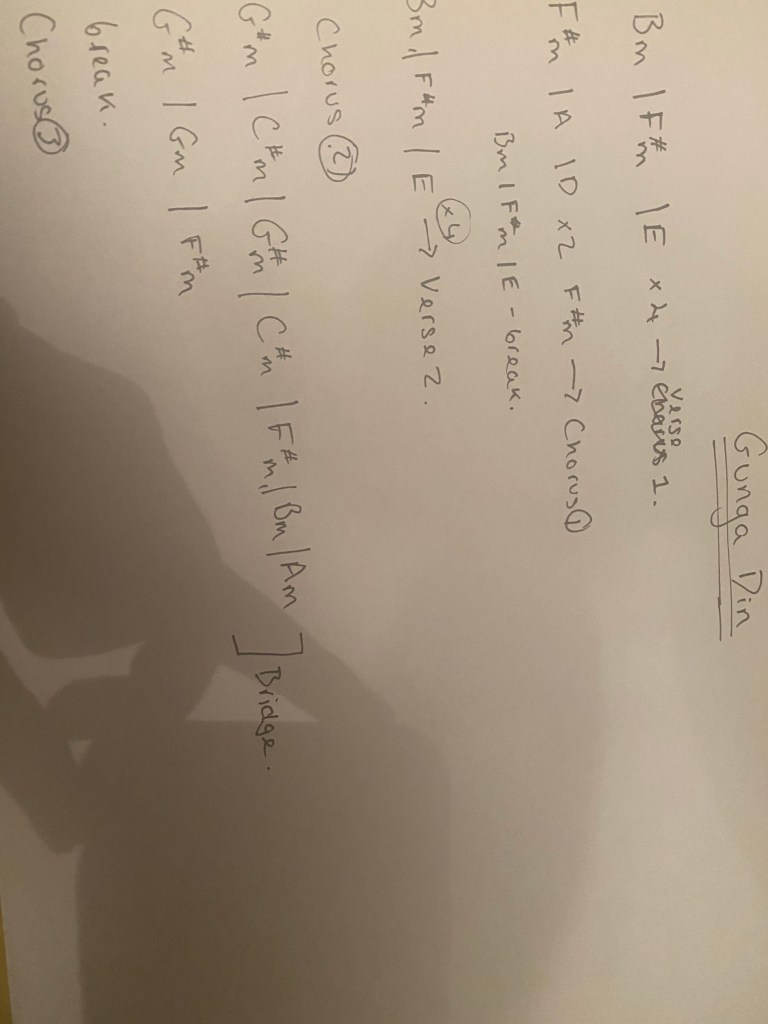 Gunga Din
Bm | F#m | E x 4 → Verse 1.
F#m | A | D x2 F#m → Chorus ①
Bm | F#m | E - break.
Bm | F#m | E x4 → Verse 2.
Chorus ②
G#m | C#m | G#m | C#m | F#m | Bm | Am ] Bridge.
G#m | Gm | F#m
break.
Chorus ③